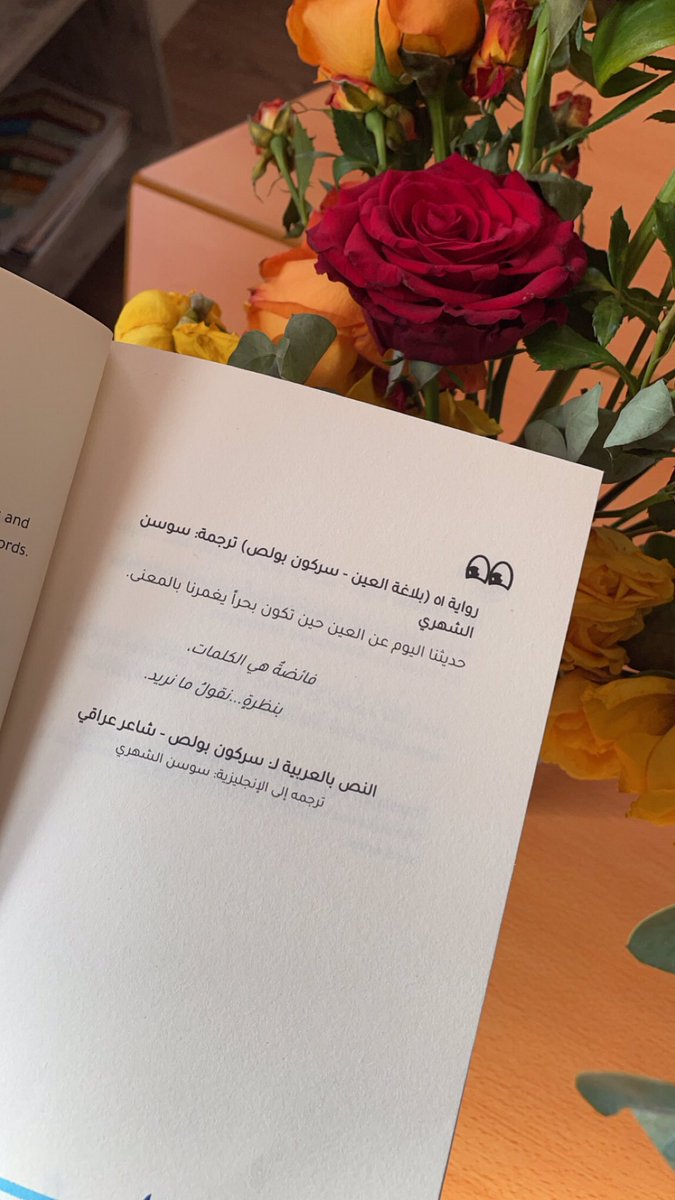 and
ords.
رواية ٥١ (بلاغة العين - سركون بولص) ترجمة: سوسن
الشهري
حديثنا اليوم عن العين حين تكون بحراً يغمرنا بالمعنى.
فائضةٌ هي الكلمات،
بنظرةٍ...نقولُ ما نريد.
النص بالعربية لـ: سركون بولص - شاعر عراقي
ترجمه إلى الإنجليزية: سوسن الشهري